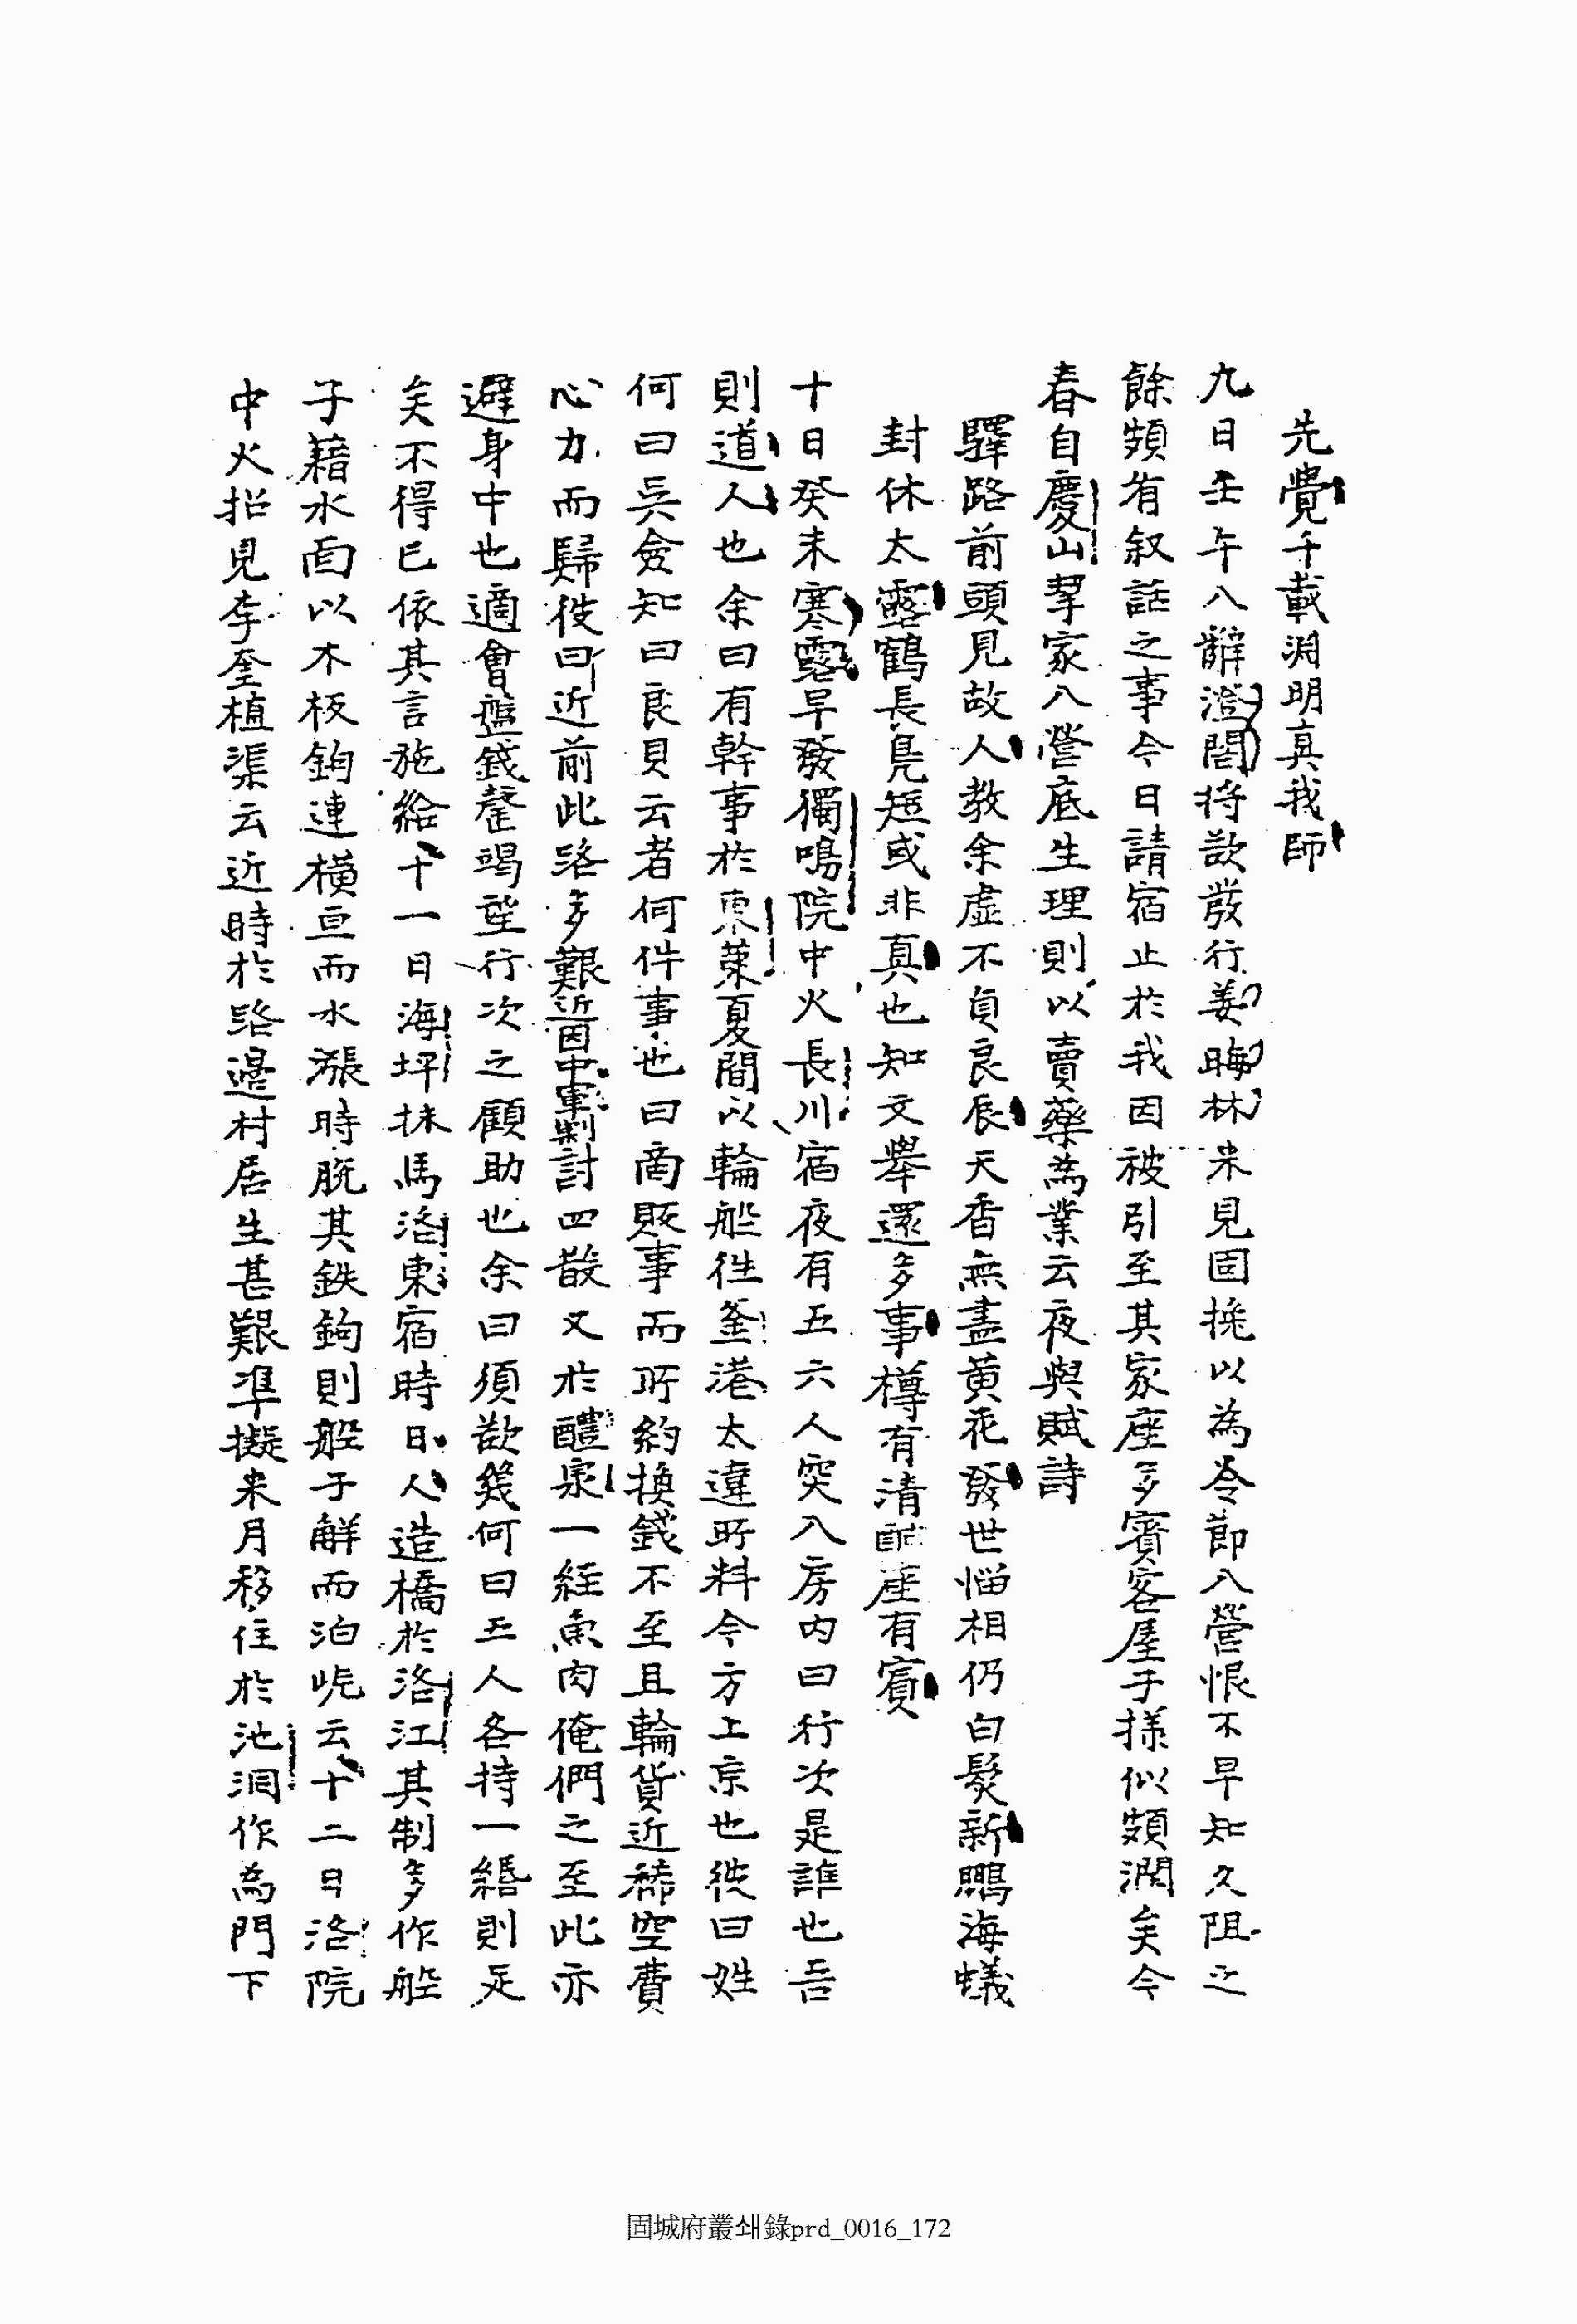 先覺千載淵明真我師
九日壬午入辭澄閣將欲發行姜晦林来見固挽以為令節入營恨不早知久阻之
餘頗有叙話之事今日請宿止於我因被引至其家座多賓客屋子樣似頗潤矣今
春自慶山挈家入營底生理則以賣藥為業云夜與賦詩
驛路前頭見故人教余虛不負良辰天香無盡黄花發世惱相仍白髮新鵬海蟻
封休太露鶴長鳧短或非真也知文擧還多事樽有清醑座有賓
十日癸未寒露早發獨鳴院中火長川宿夜有五六人突入房內曰行次是誰也吾
則道人也余曰有幹事於東萊夏間以輪船徃釜港太違所料今方上京也彼曰姓
何曰吳僉知曰良貝云者何件事也曰商販事而所約換錢不至且輪貨近稀空費
心力而歸彼曰近前此路多艱近因中軍剿討四散又於醴泉一経魚肉俺們之至此亦
避身中也適會盤錢罄竭望行次之顧助也余曰須欲幾何曰五人各持一緡則足
矣不得已依其言施給十一日海坪抹馬洛東宿時日人造橋於洛江其制多作船
子藉水面以木板鉤連橫亘而水漲時脫其鉄鉤則船子觧而泊岸云十二日洛院
中火招見李奎植渠云近時於路邊村居生甚艱準擬来月移住於池洞作為門下
固城府叢쇄錄prd_0016_172